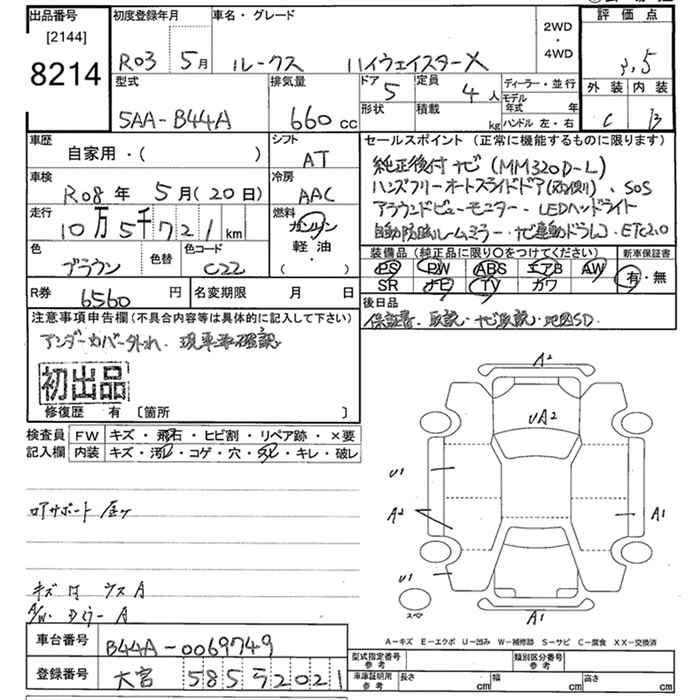 出品番号
[2144]
8214
初度登録年月
R03 5月
車名・グレード
ルークス ハイウェイスターX
2WD
・
4WD
評価点
3.5
外装 内装
C B
型式
5AA-B44A
排気量
660 cc
ドア 5
定員 4人
形状
積載 kg
ディーラー・並行
モデル年式 年
ハンドル 左・右
車歴
自家用・( )
シフト
AT
車検
R08年 5月(20日)
冷房
AAC
走行
10万5千721km
燃料
ガソリン
軽油
( )
色
ブラウン
色替
色コード
C22
セールスポイント(正常に機能するものに限ります)
純正後付ナビ(MM320D-L)
ハンズフリーオートスライドドア(両側)、SOS
アラウンドビューモニター、LEDヘッドライト
自動防眩ルームミラー・ナビ連動ドラレコ・ETC2.0
装備品(純正品に限り○をつけてください)
新車保証書
PS PW ABS エアB AW
SR ナビ TV カワ
有・無
R券 6560円
名変期限 月 日
後日品
保証書、取説・ナビ取説・地図SD
注意事項申告欄(不具合内容等は具体的に記入して下さい)
アンダーカバー外れ、現車要確認
初出品
修復歴 有 [箇所 ]
検査員
記入欄
FW キズ・飛石・ヒビ割・リペア跡・×要
内装 キズ・汚レ・コゲ・穴・スレ・キレ・破レ
ロアサポート
キズ
ウスA
A/W
A
A2
UA2
U1
A2
A1
U1
スペア
A1
A-キズ E-エクボ U-凹み W-補修跡 S-サビ C-腐食 XX-交換済
車台番号
B44A-0069749
登録番号
大宮 585 ラ 2021
型式指定番号
参考
類別区分番号
参考
車庫証明用
参考
長さ cm
幅 cm
高さ cm